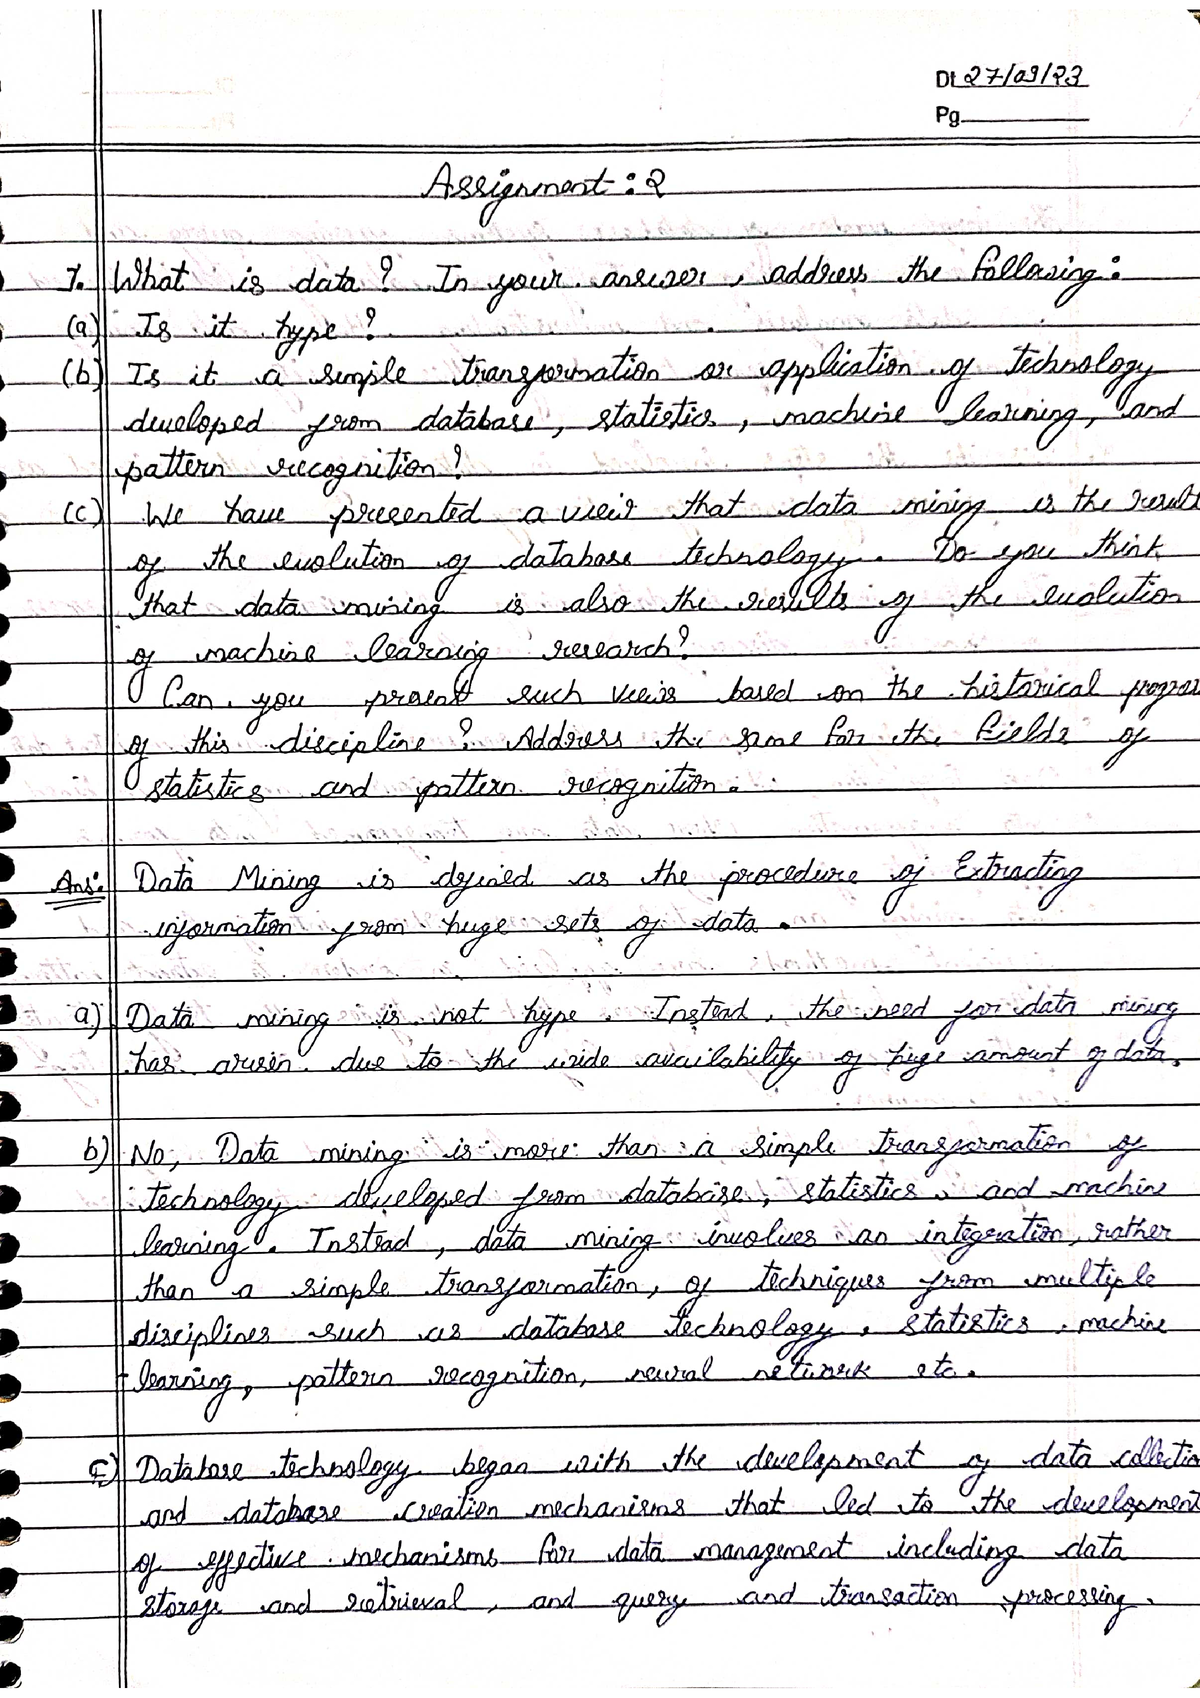 Dt 27/09/23
Pg.
Assignment : 2
1. What is data ? In your answer , address the following :
(a) Is it hype ?
(b) Is it a simple transformation or application of technology
developed from database, statistics , machine learning, and
pattern recognition ?
(c) We have presented a view that data mining is the result
of the evolution of database technology . Do you think
that data mining is also the results of the evolution
of machine learning research ?
Can you present such views based on the historical progres
of this discipline ? Address the same for the fields of
statistics and pattern recognition .
Ans: Data Mining is defined as the procedure of Extracting
information from huge sets of data .
a) Data mining is not hype . Instead , the need for data mining
has arisen due to the wide availability of huge amount of data.
b) No, Data mining is more than a simple transformation of
technology developed from database , statistics , and machine
learning . Instead , data mining involves an integration, rather
than a simple transformation, of techniques from multiple
disciplines such as database technology , statistics , machine
learning, pattern recognition, neural network etc .
c) Database technology began with the development of data collectio
and database creation mechanisms that led to the development
of effective mechanisms for data management including data
storage and retrieval , and query and transaction processing .